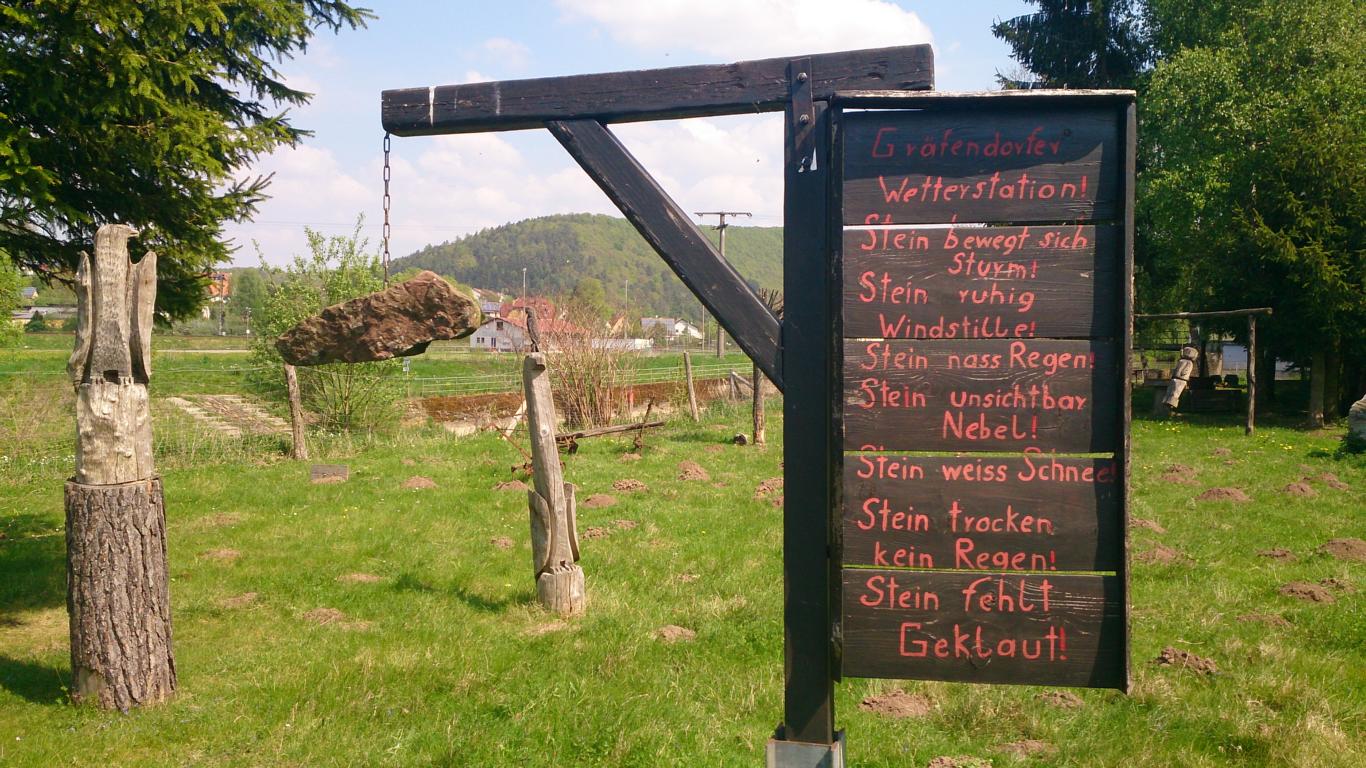 Gräfendorfer
Wetterstation!
Stein bewegt sich
Sturm!
Stein ruhig
Windstille!
Stein nass Regen!
Stein unsichtbar
Nebel!
Stein weiss Schnee!
Stein trocken
kein Regen!
Stein fehlt
Geklaut!